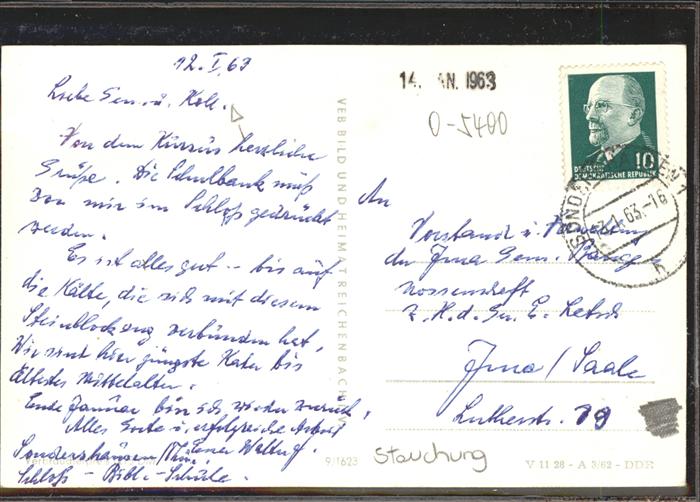 12.I.63
Liebe Gen. u. Koll.
Von dem Kursus herzliche
Grüße. Die Schulbank muß
von mir im Schloß gedrückt
werden.
Es ist alles gut – bis auf
die Kälte, die sich mit diesem
Steinblockzeug verbünden hat,
Wir sind hier jüngste Kater bis
ältestes Mittelalter.
Ende Januar bin ich wieder zurück.
Alles Gute u. erfolgreiche Arbeit
Sondershausen/Thür.
Schloß - Bibl. - Schule.
VEB BILD UND HEIMAT REICHENBACH
9/1623
14. JAN. 1963
0-5400
DEUTSCHE
DEMOKRATISCHE REPUBLIK
10
.1.63.-16
h
An
Vorstand u.
der Jena Gem.
nossenschaft
z. H. d. Gen. E.
Jena/Saale
Lutherstr. 79
Stauchung
V 11 28 - A 3/62 - DDR